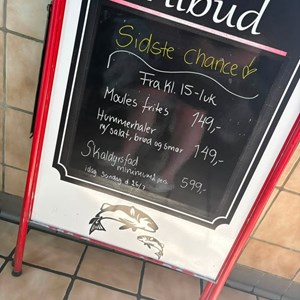 Tilbud
Sidste chance!
Fra kl. 15-luk
Moules frites 149,-
Hummerhaler
m/salat, brød og smør 149,-
Skaldyrsfad
minimum 2 pers 599,-
idag Søndag d. 26/7